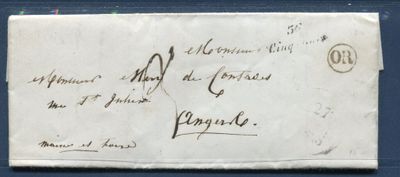 56
Cinq-Mars
OR
Monsieur
Monsieur Henry de Contades
rue St Julien
Angers.
maine et Loire
27